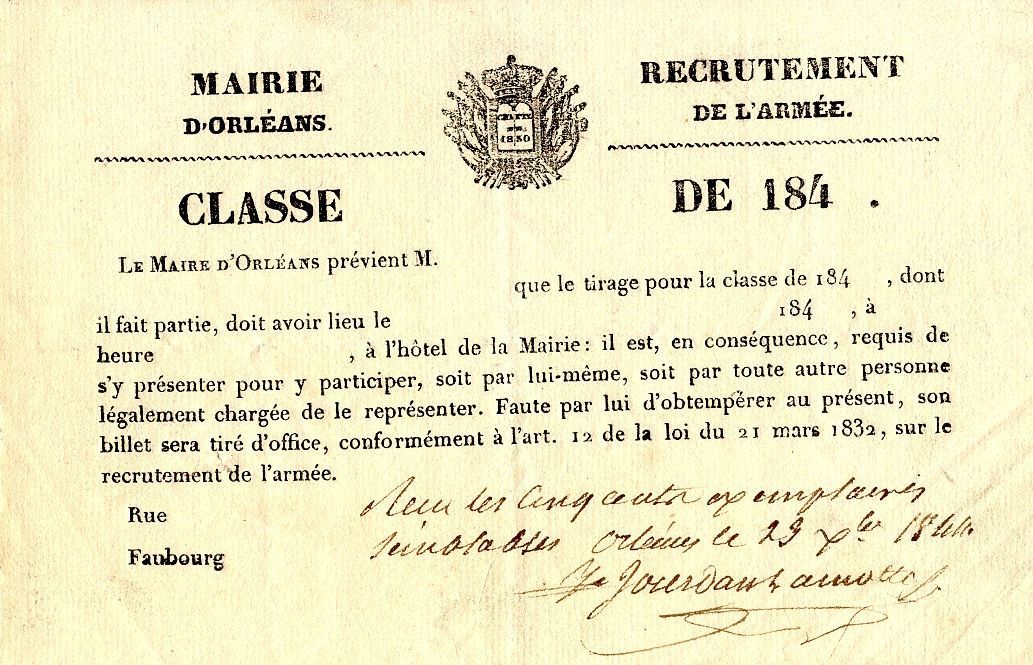 MAIRIE
D'ORLÉANS.
CHARTE
DE
1830
RECRUTEMENT
DE L'ARMÉE.
CLASSE DE 184 .
LE MAIRE D'ORLÉANS prévient M.
que le tirage pour la classe de 184 , dont
il fait partie, doit avoir lieu le 184 , à
heure , à l'hôtel de la Mairie : il est, en conséquence, requis de
s'y présenter pour y participer, soit par lui-même, soit par toute autre personne
légalement chargée de le représenter. Faute par lui d'obtempérer au présent, son
billet sera tiré d'office, conformément à l'art. 12 de la loi du 21 mars 1832, sur le
recrutement de l'armée.
Rue
Faubourg
Reçu les cinq cents exemplaires
semblables Orléans le 23 xbre 1844
Jourdan Lamotte